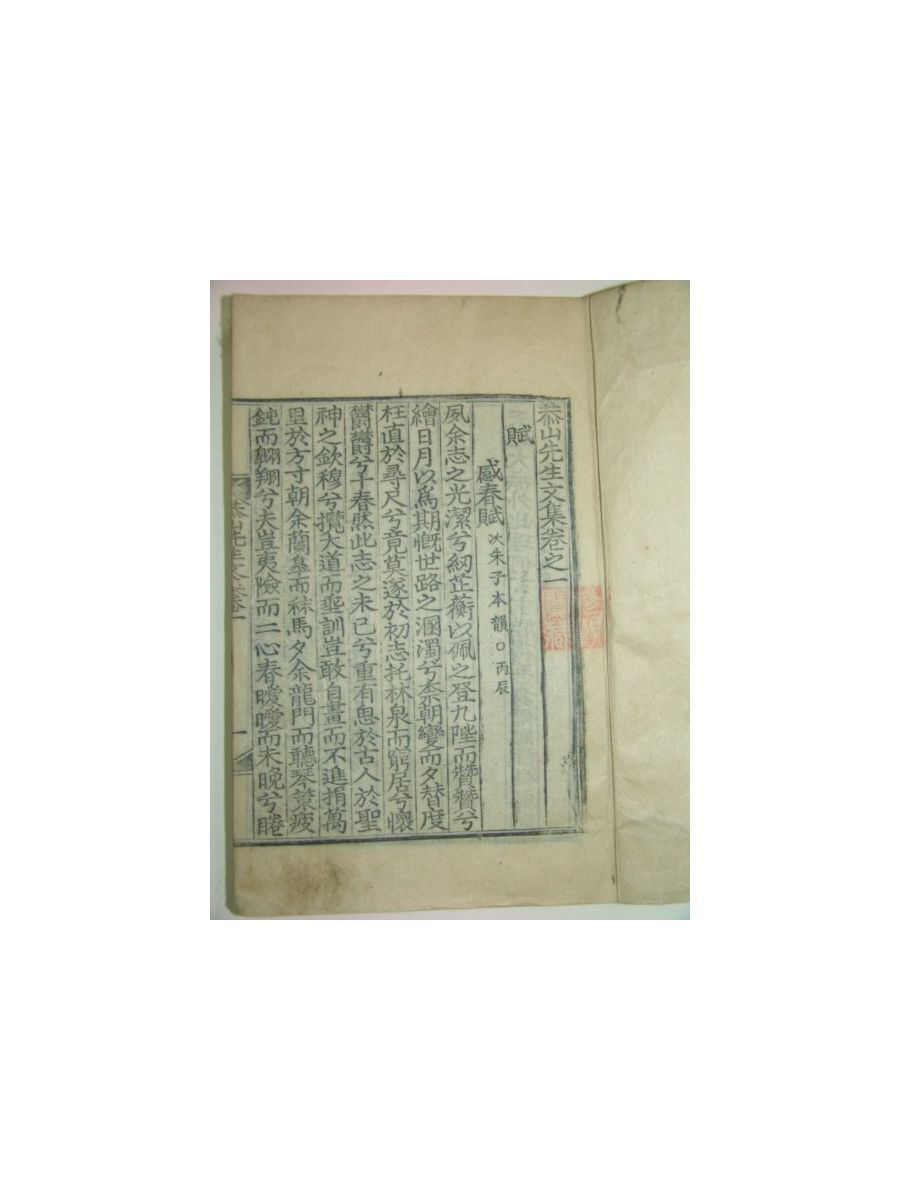 恭山先生文集卷之一
賦
感春賦 次朱子本韻○丙辰
夙余志之光潔兮紉芷蘅以佩之登九陛而贊襄兮
繪日月以爲期慨世路之溷濁兮柰朝變而夕替度
枉直於尋尺兮竟莫遂於初志托林泉而窮居兮懷
欝欝兮千春然此志之未已兮重有思於古人於聖
神之欽穆兮攬大道而垂訓豈敢自畫而不進捐萬
里於方寸朝余蘭皋而秣馬夕余龍門而聽琴策疲
鈍而翶翔兮夫豈夷險而二心春曖曖而未晩兮睠
恭山先生文集卷一
一